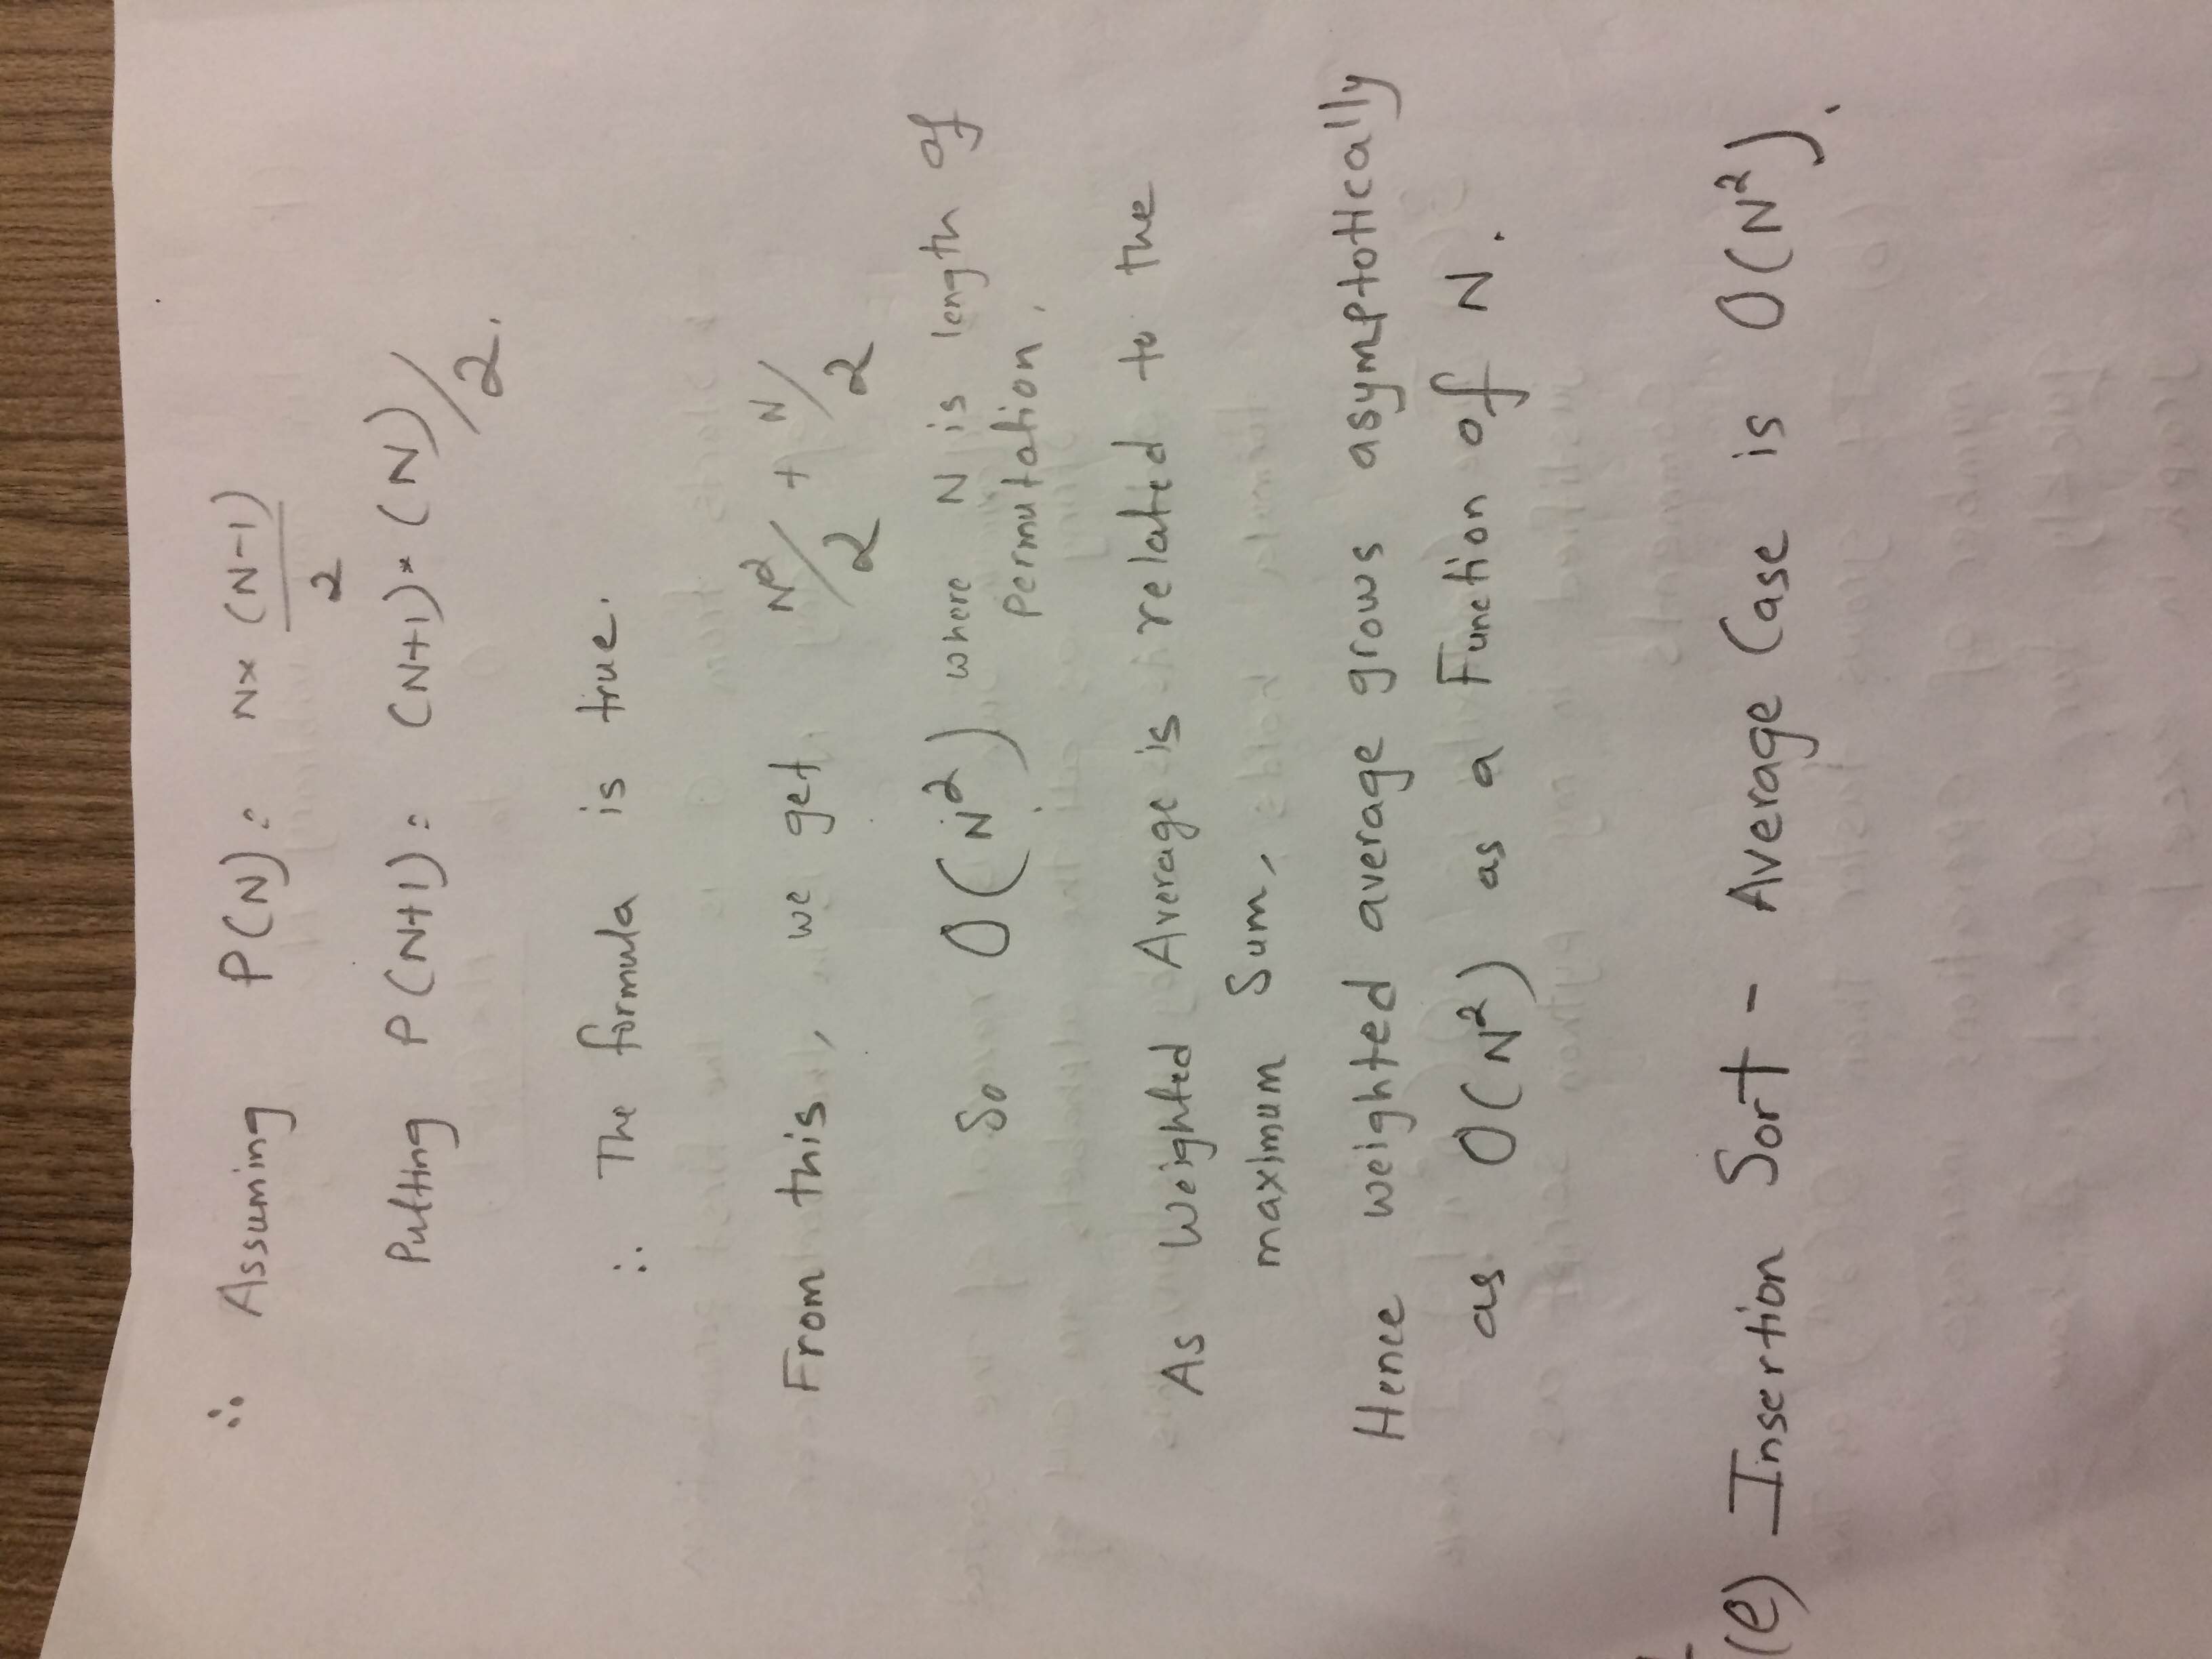 ∴ Assuming P(N) = N × (N-1)/2
Putting P(N+1) = (N+1) * (N)/2.
∴ The formula is true.
From this, we get N²/2 + N/2
So O(N²) where N is length of
permutation.
As Weighted Average is related to the
maximum Sum,
Hence weighted average grows asymptotically
as O(N²) as a Function of N.
(e) Insertion Sort - Average Case is O(N²).